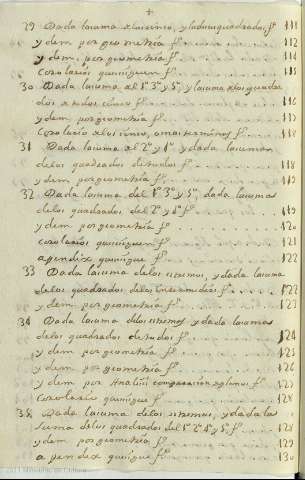 +
29 Dada la suma de los cinco, y la de sus quadrados, fº 111
y dem por geometría fº 112
y dem. por geometría fº 113
corolarios que se siguen fº 115
30 Dada la suma del 1º 3º y 5º, y la suma de los quadra
dos de todos cinco fº 116
y dem por geometría fº 117
Corolario de los cinco, o mas terminos fº 118
31 Dada la suma del 2º y 4º, y dada la suma
de los quadrados de todos fº 118
y dem por geometría fº 119
32 Dada la suma del 1º 3º y 5º, dada la suma
de los quadrados, del 2º y 4º fº 119
y dem por geometría fº 120
corolarios que se siguen fº 121
apendix que se sigue fº 122
33 Dada la suma de los estremos, y dada la suma
de los quadrados de los intermedios fº 122
y dem por geometría fº 123
34 Dada la suma de los estremos y dada la suma
de los quadrados de todos fº 124
y dem por geometría fº 125
y dem por geometría fº 126
y dem por Analisi fº 127
corolario que se sigue fº 128
35 Dada la suma de los estremos, y dada la
suma de los quadrados del 1º 2º 4º y 5º fº 128
y dem por geometría fº 129
apendix que se sigue fº 130